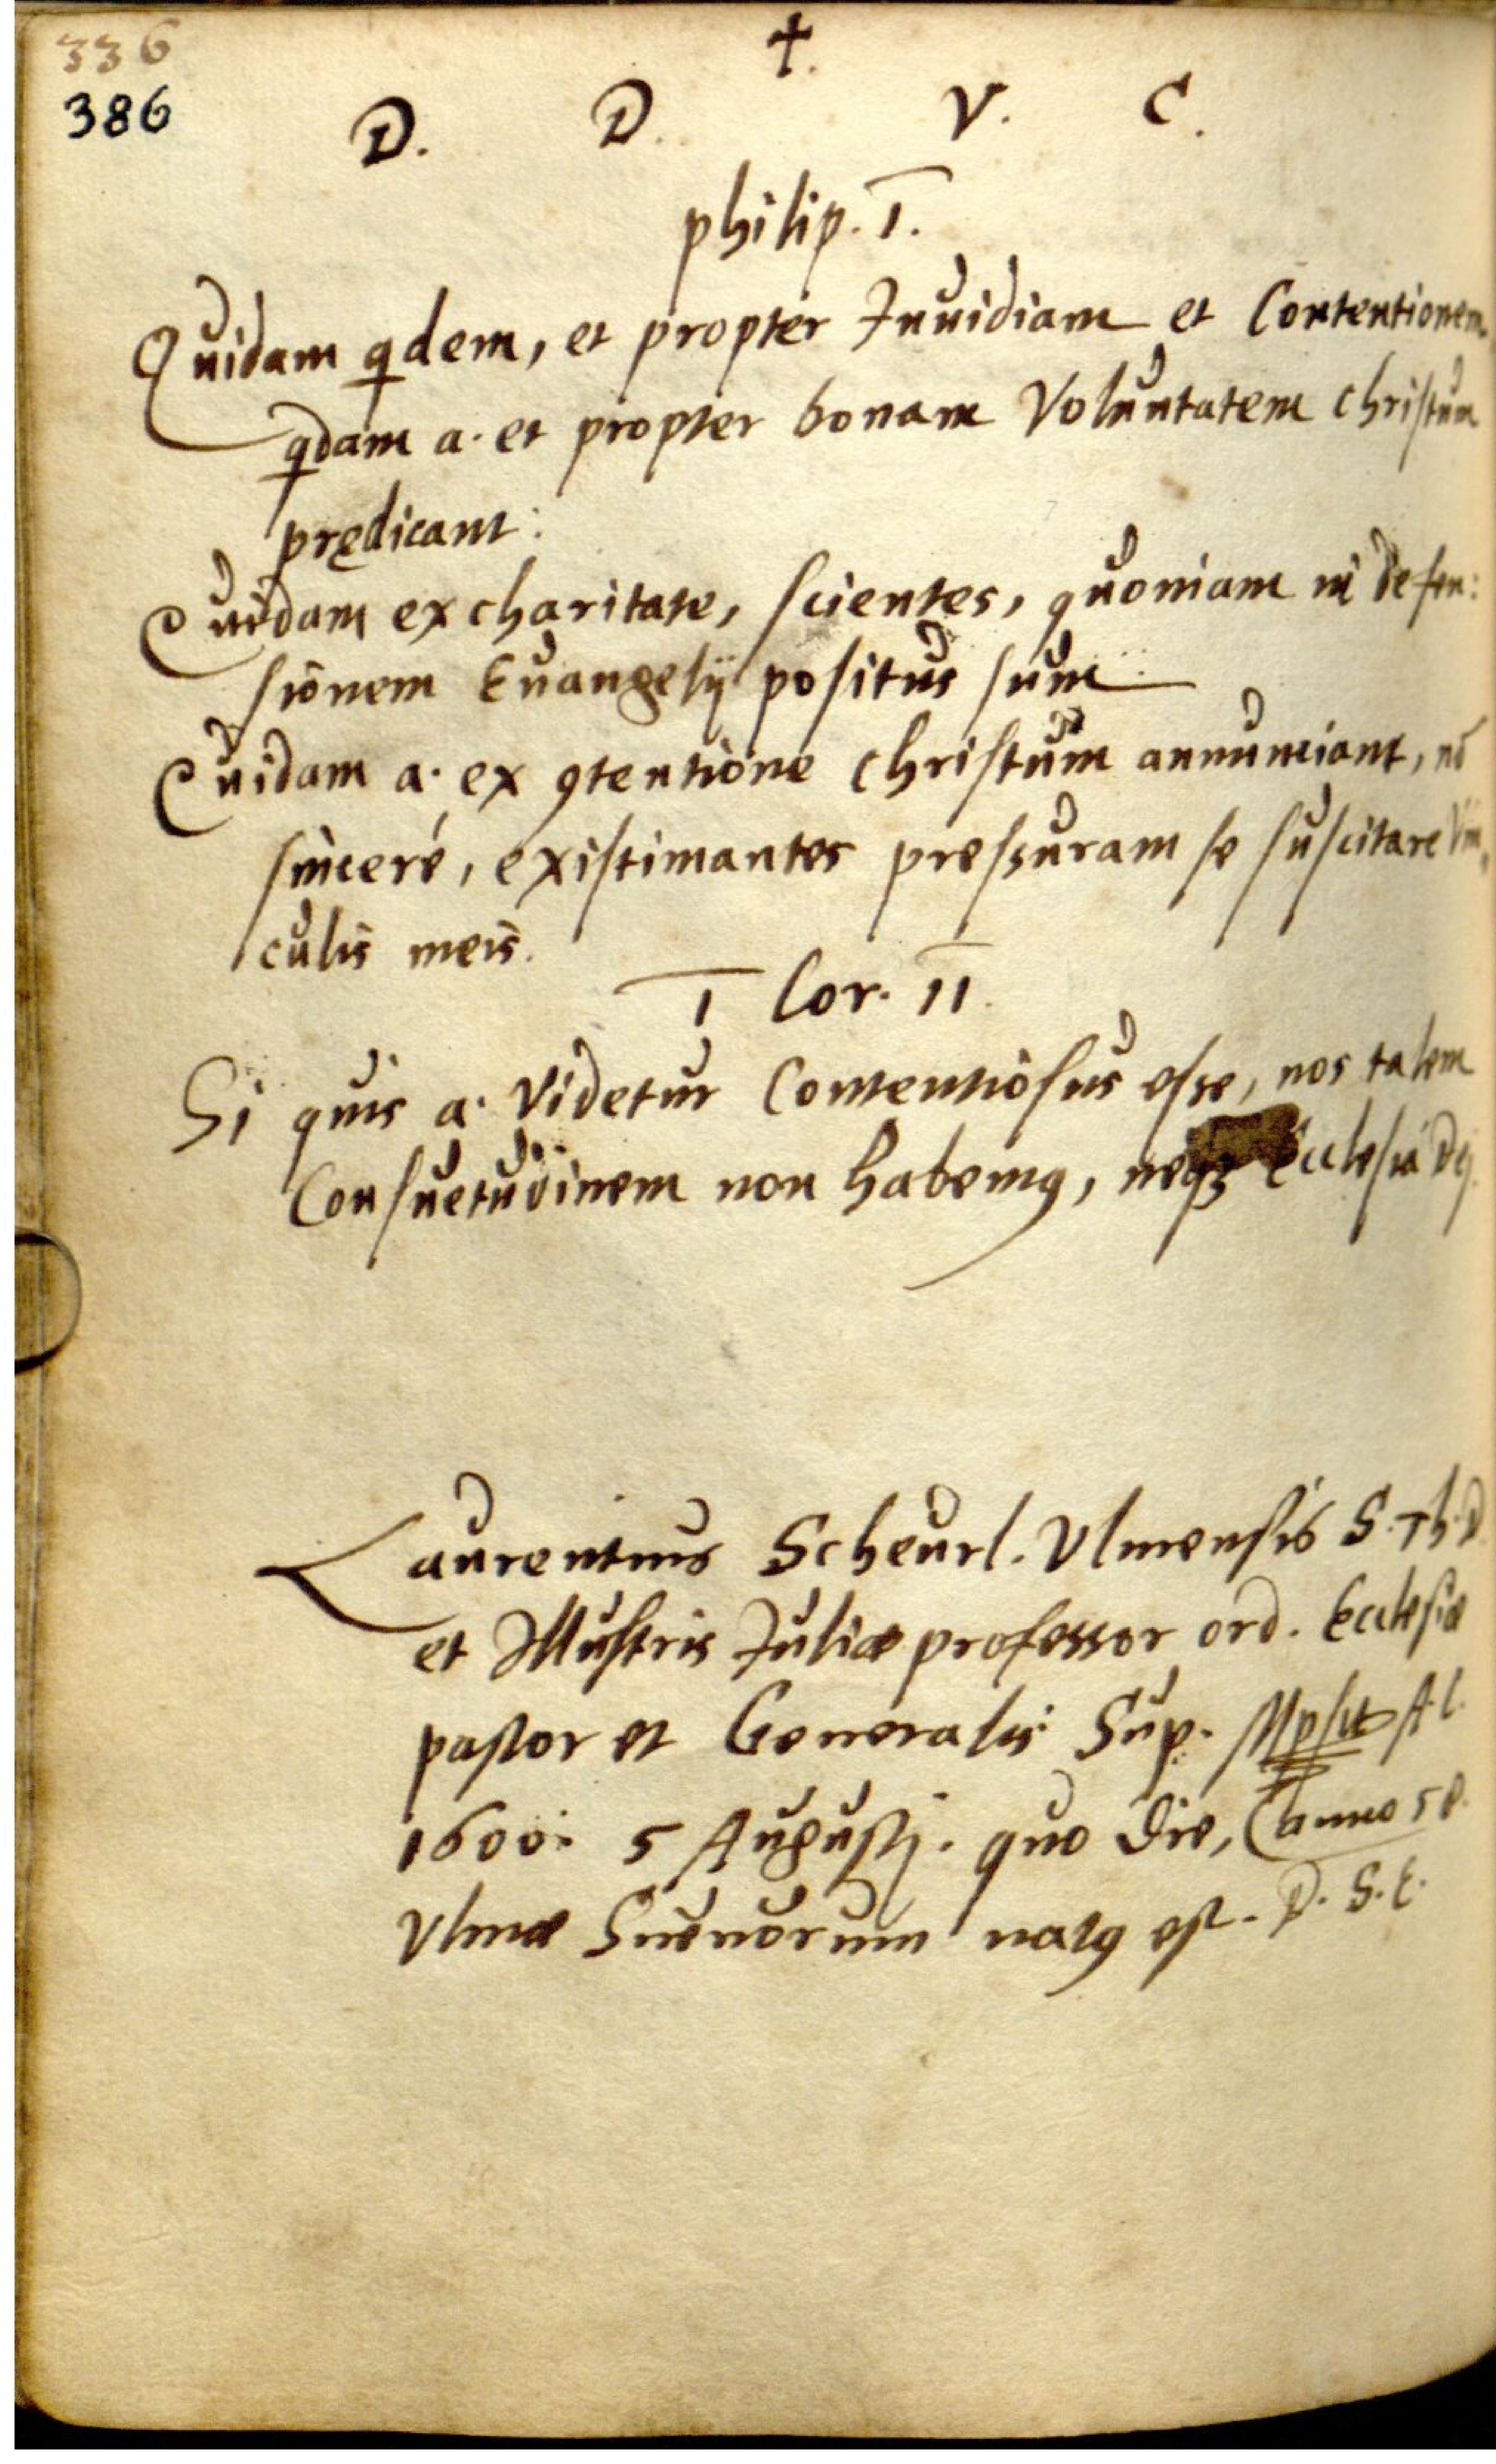 336
386
†.
D. D. V. C.
philip. I.
Quidam qdem, et propter Inuidiam et Contentionem
qdam a. et propter bonam Voluntatem christum
prędicant:
Quidam ex charitate, scientes, quoniam in defen:
sionem Euangelij positus sum
Quidam a. ex 9tentione christum annunciant, nō
sinceré, existimantes pressuram se suscitare Vin,
culis meis.
I Cor. 11.
Si quis a. Videtur Contentiosus esse, nos talem
Consuetudinem non habem9, neqꝫ Ecclesia Dej.
Laurentius Scheurl. Vlmensis S. Th. D.
et Illustris Juliæ professor ord. Ecclesiæ
pastor et Generalis Sup.
1600. 5 Augustj. quo die, (anno 58.
Vlmæ Sueuorum nat9 est. D. S. E.